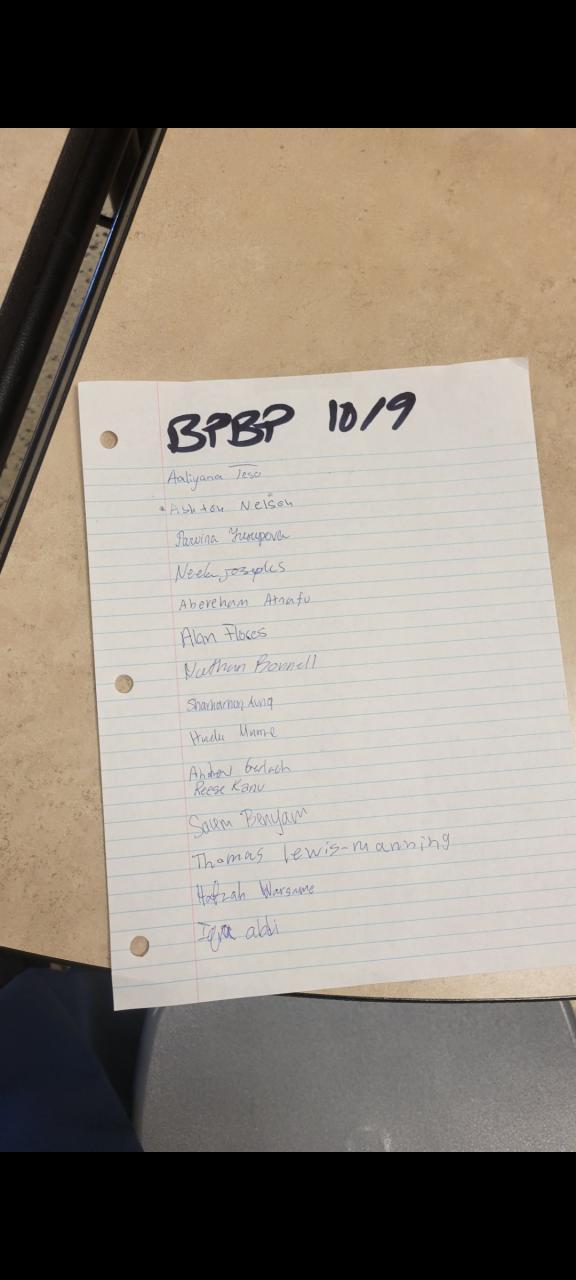 BPBP 10/9
Aaliyana Teso
* Ashton Nelson
Parvina Yusupova
Neela Josephs
Abereham Atnafu
Alan Flores
Nathan Bonnell
Aung
Huda
Andrew Gerlach
Reese Kanu
Salem Benyam
Thomas lewis-manning
Hafzah Warsame
Iqra abdi